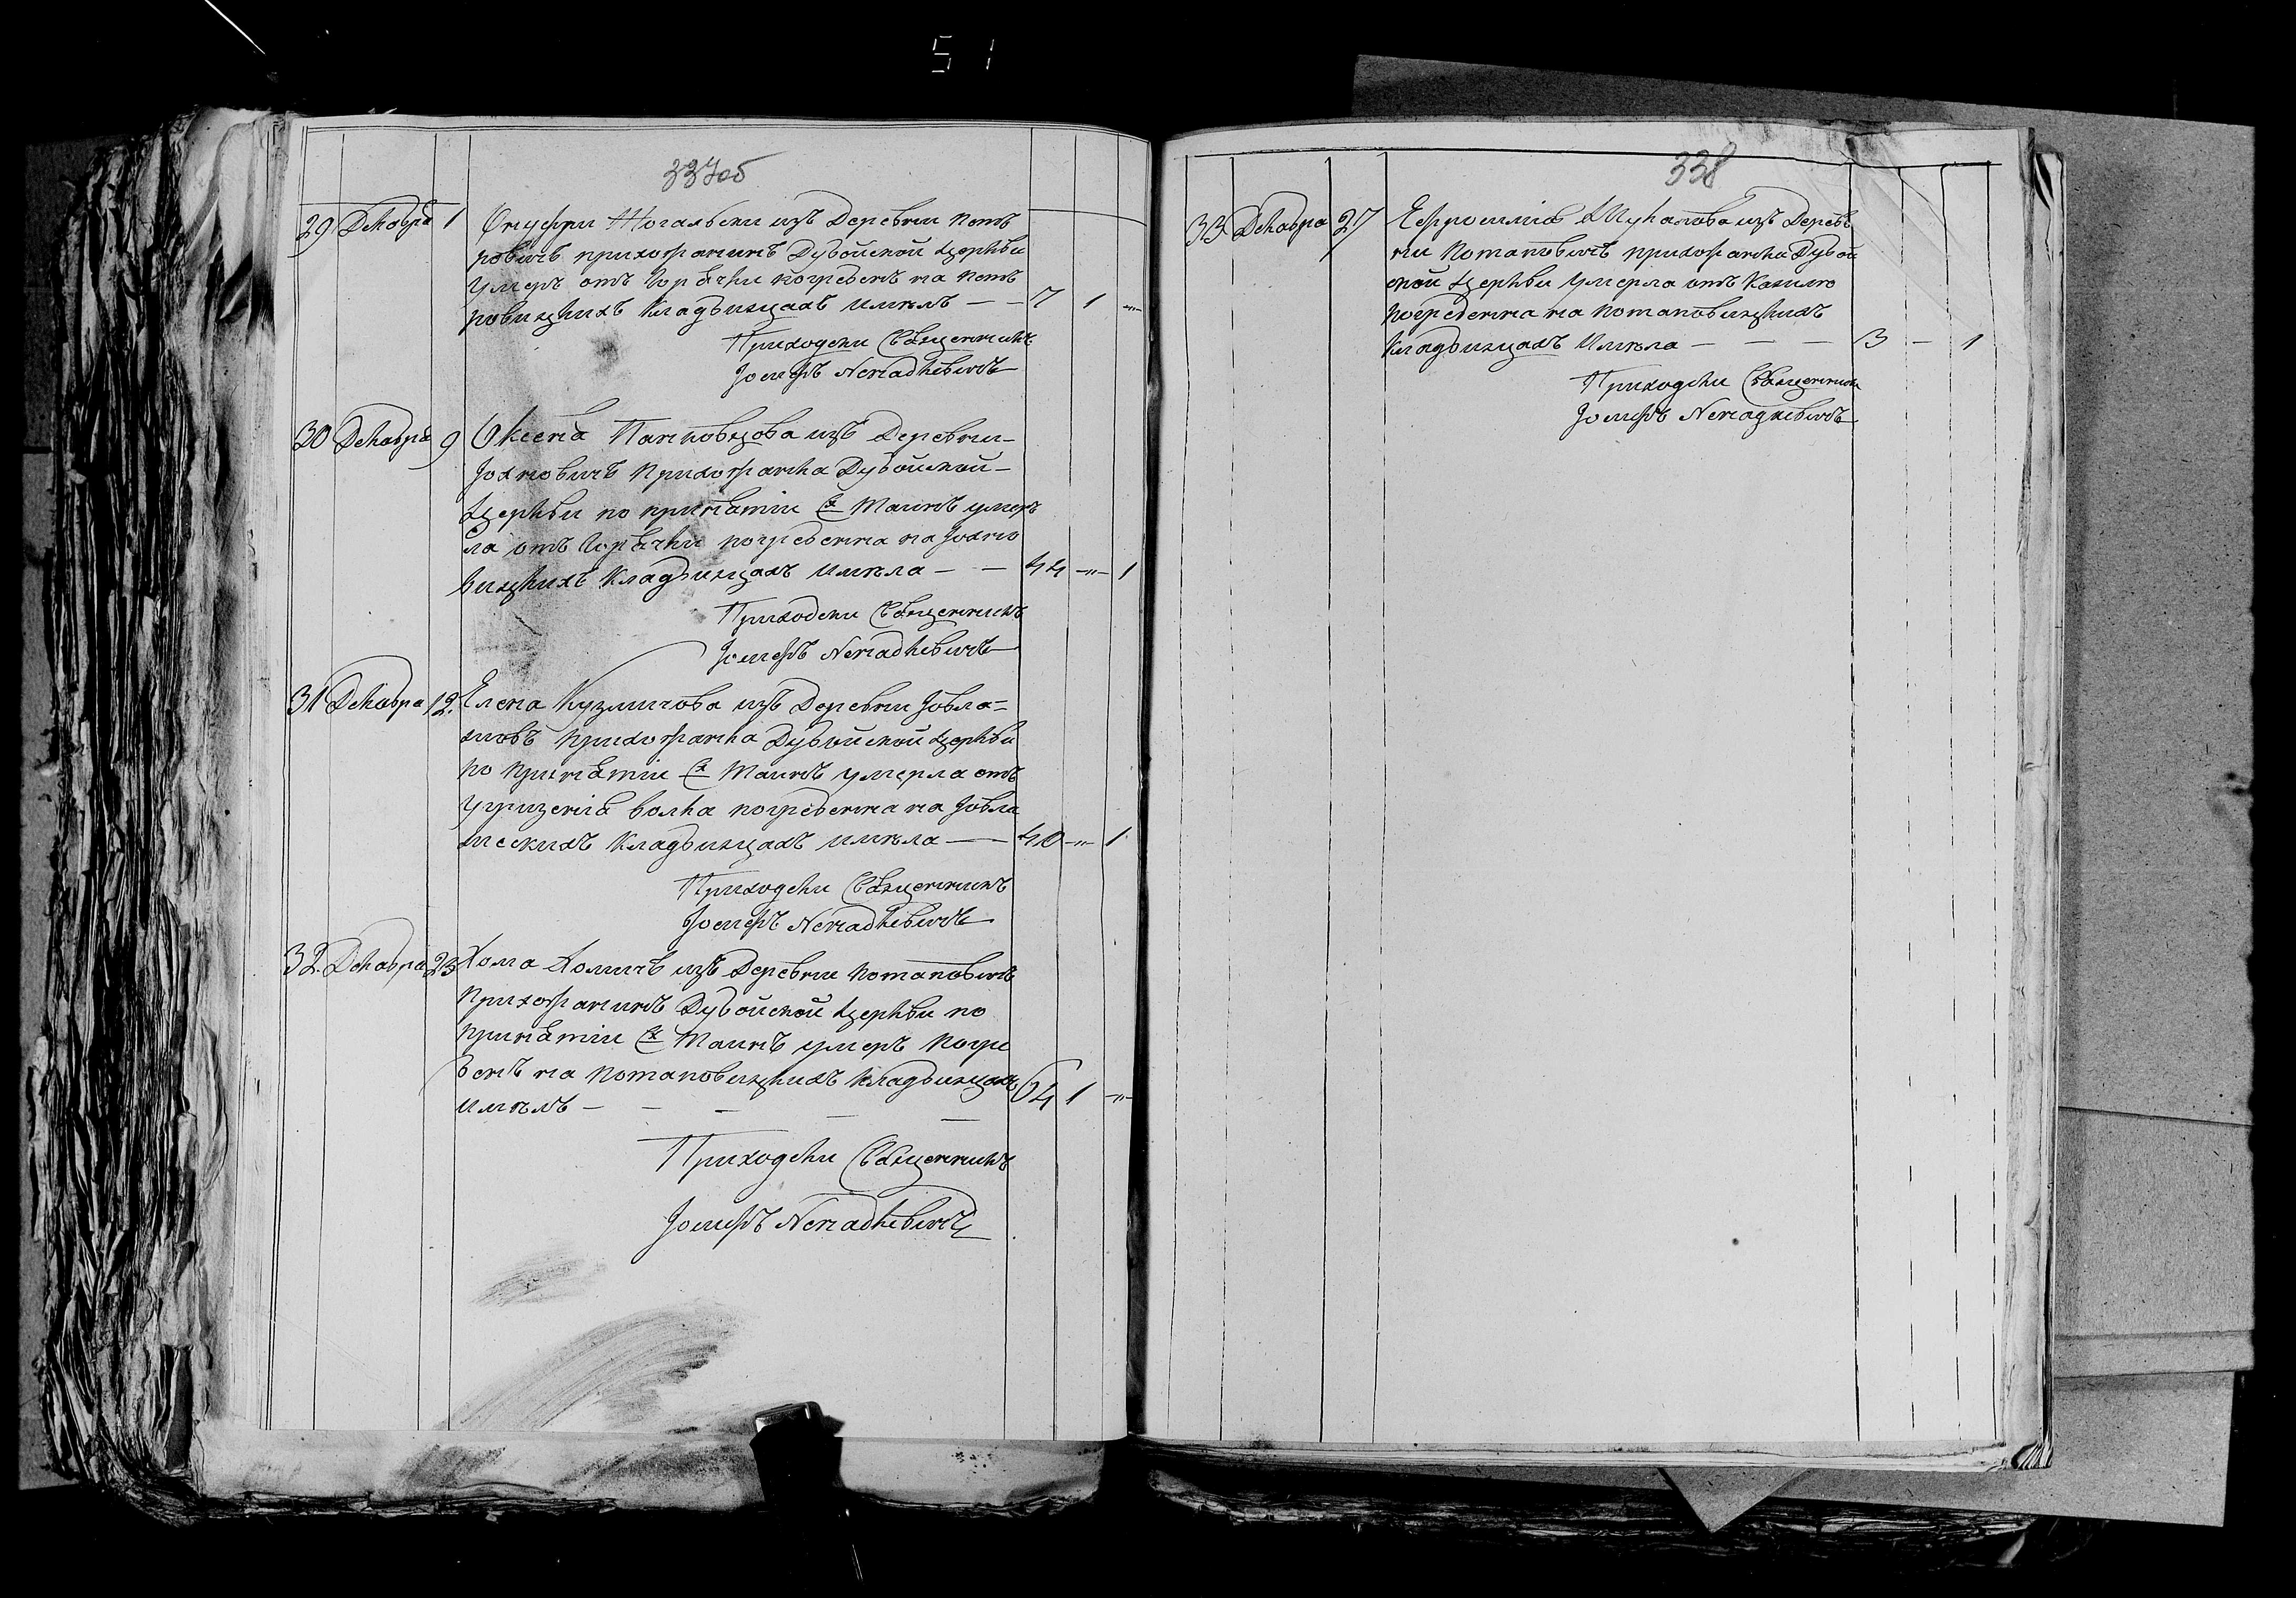 51
337об
29 Декабря 1 Онуфри Могальски изъ Деревни Пет
ровичъ прихожанинъ Дубойской Церкви
умеръ отъ Горячки погребенъ на Пет
ровицкихъ Кладбищахъ имелъ — — 7 1 -"-
Приходски Священникъ
Іосифъ Ненадкевичъ
30 Декабря 9 Оксеня Пантовцова изъ Деревни
Іохновичъ Прихожанка Дубойской
Церкви по принятіи Св Таинъ умер
ла отъ Горячки погребенна на Іохно
вицкихъ Кладбищахъ имела — — 44 -"- 1
Приходски Священникъ
Іосифъ Ненадкевичъ
31 Декабря 12. Елена Кузмичова изъ Деревни Ювла=
шовъ Прихожанка Дубойской Церкви
по Принятіи Св Таинъ умерла отъ
Угризенія волка погребенна на Ювла
шескихъ Кладбищахъ имела — 40 -"- 1
Приходски Священникъ
Іосифъ Ненадкевичъ
32. Декабря 23 Хома Хомичъ изъ Деревни Потаповичъ
Прихожанинъ Дубойской Церкви по
Принятіи Св Таинъ умеръ Погре
бенъ на Потаповицкихъ Кладбищахъ
имелъ — — — — — 64 1 -"-
Приходски Священникъ
Іосифъ Ненадкевичъ
338
33 Декабря 27 Ефросинія Шукалова изъ Дерев
ни Потаповичъ прихожанка Дубой
ской Церкви умерла отъ Кашлю
погребенна на Потаповицкихъ
Кладбищахъ Имела — — — 3 — 1
Приходски Священникъ
Іосифъ Ненадкевичъ